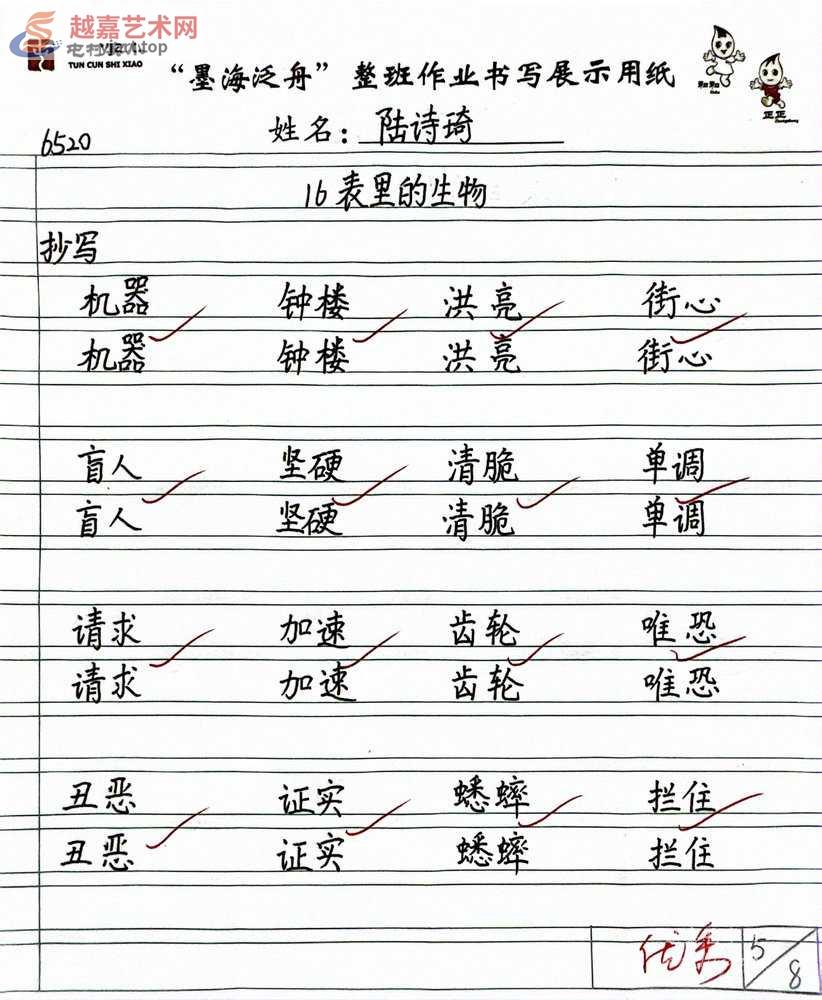 越嘉艺术网
yjz.top
TUN CUN SHI XIAO
“墨海泛舟”整班作业书写展示用纸
和和
正正
6520 姓名：陆诗琦
16表里的生物
抄写
机器 钟楼 洪亮 街心
机器 钟楼 洪亮 街心
盲人 坚硬 清脆 单调
盲人 坚硬 清脆 单调
请求 加速 齿轮 唯恐
请求 加速 齿轮 唯恐
丑恶 证实 蟋蟀 拦住
丑恶 证实 蟋蟀 拦住
优秀 5/8